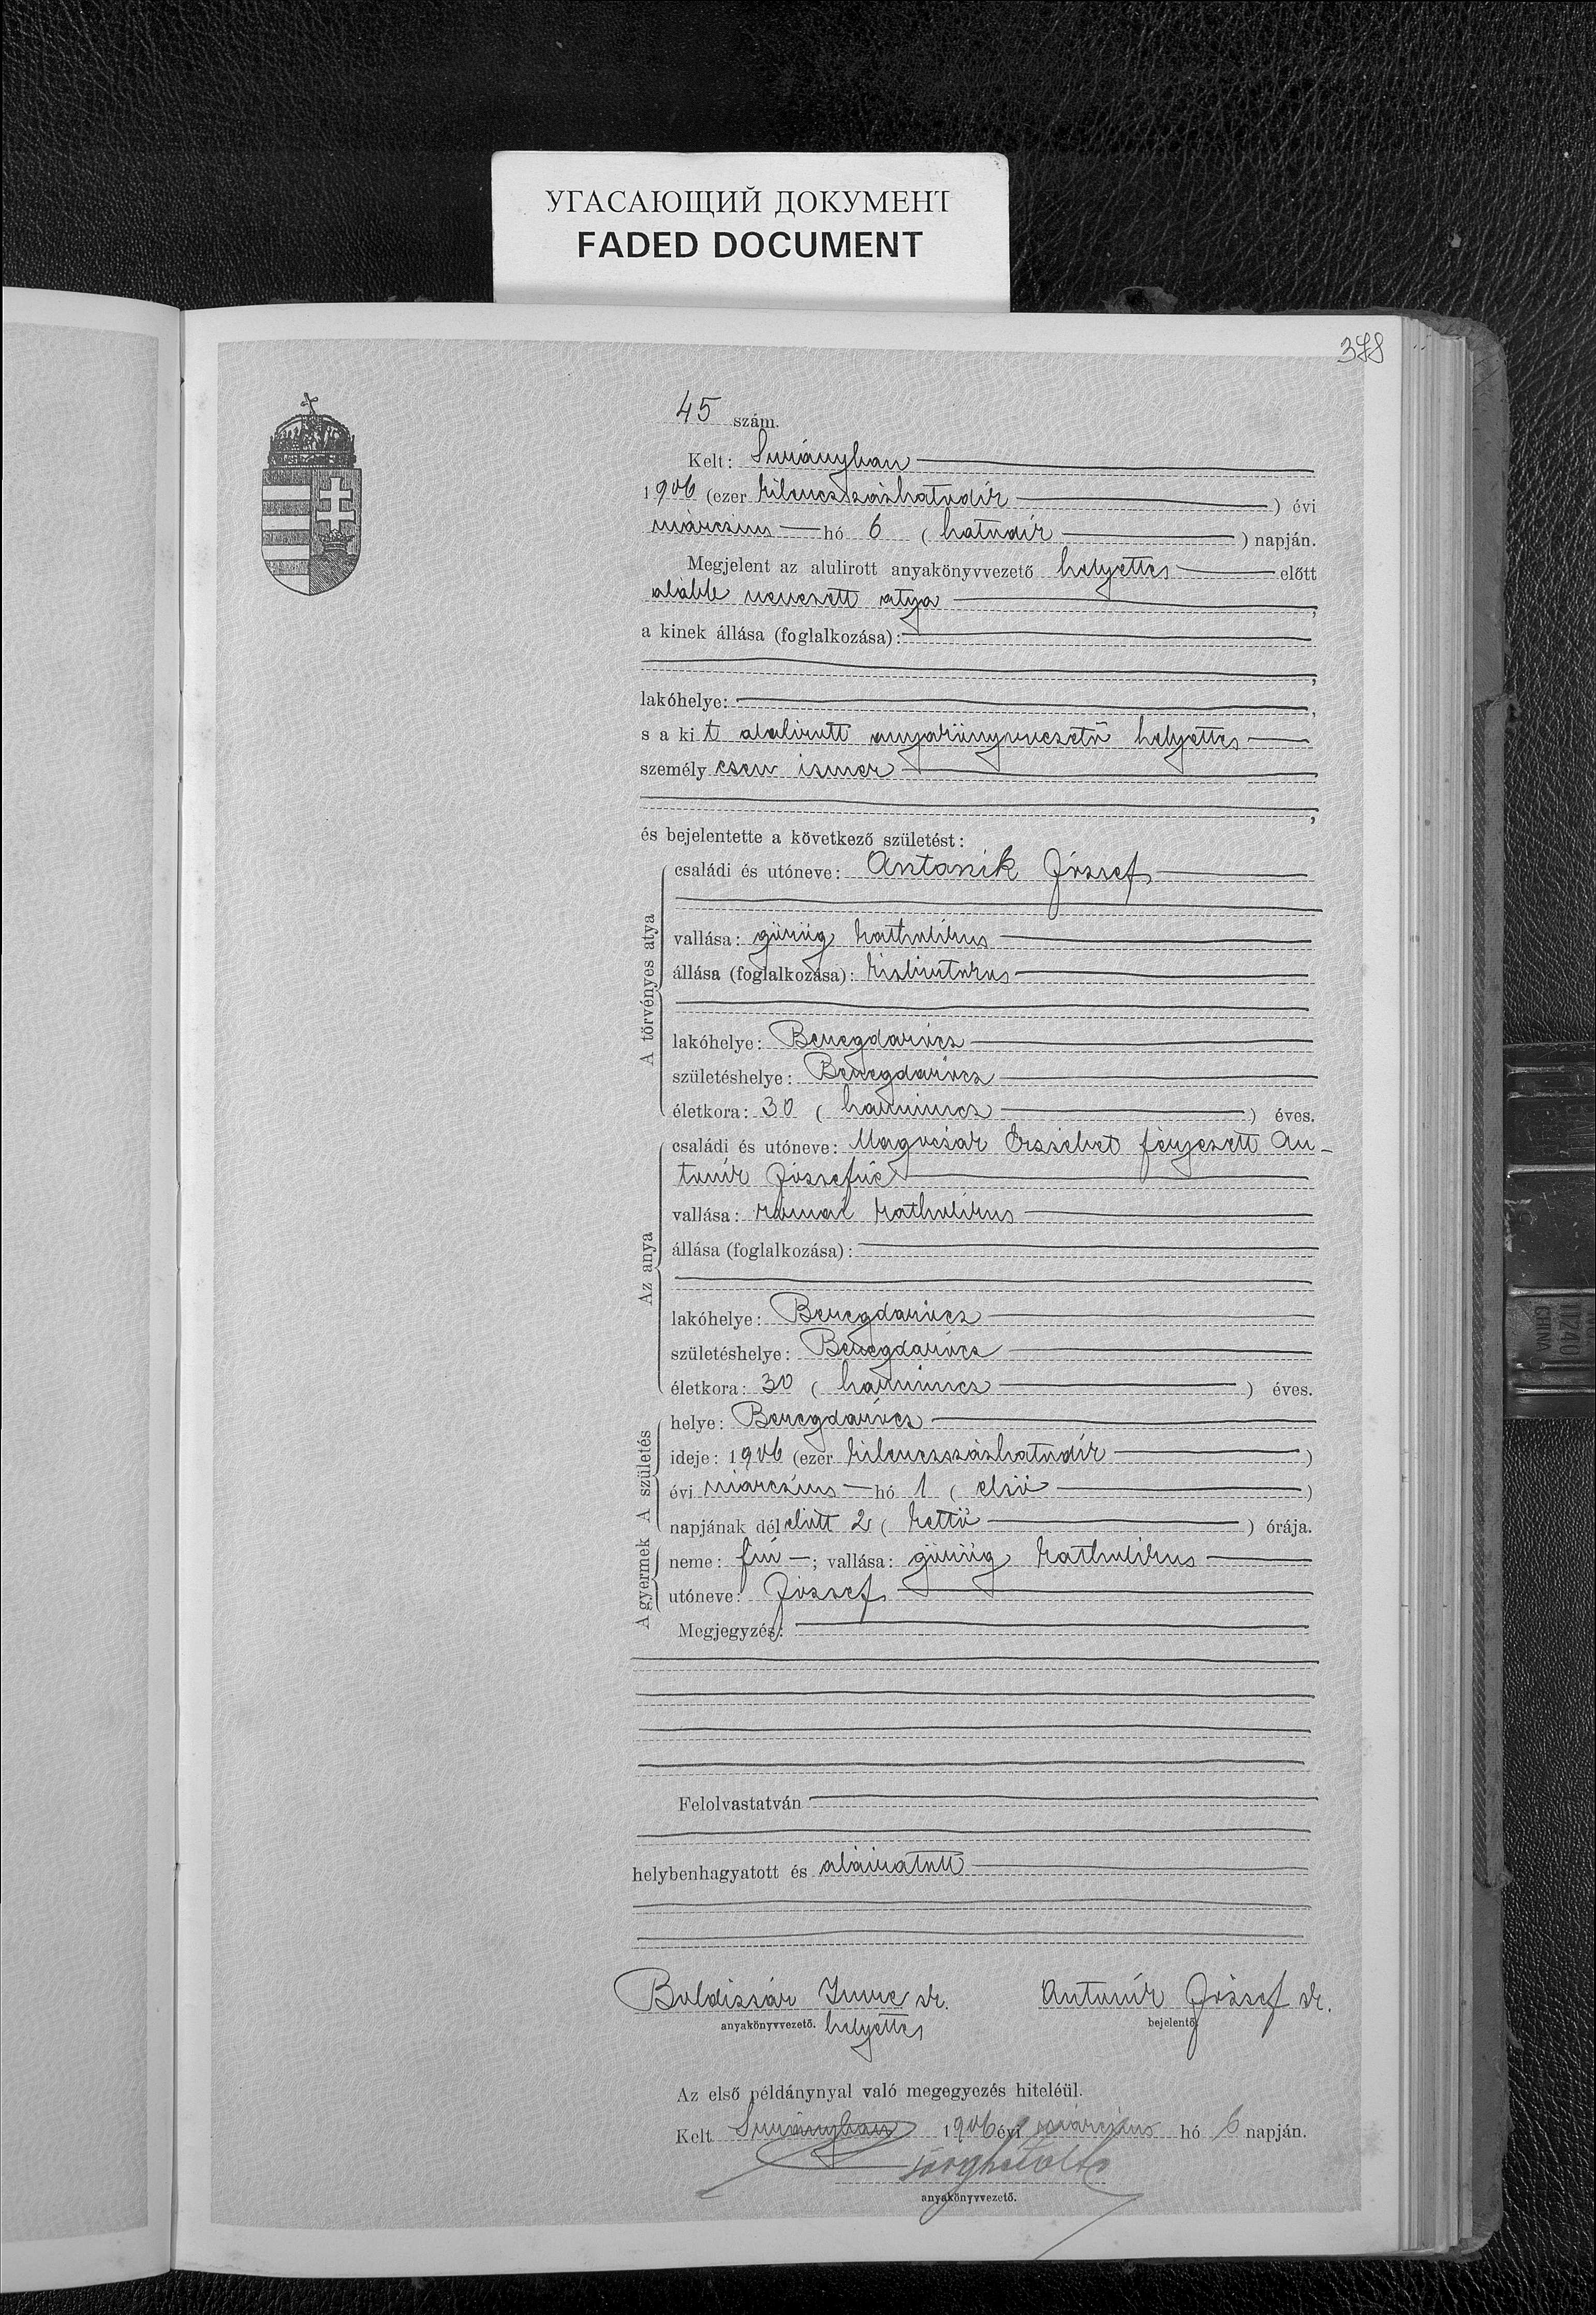 УГАСАЮЩИЙ ДОКУМЕНТ
FADED DOCUMENT
378
45 szám.
Kelt: Surányban
1906 (ezer kilencszázhatodik ) évi
március hó 6 ( hatodik ) napján.
Megjelent az alulirott anyakönyvvezető helyettes előtt
alább nevezett atya ,
a kinek állása (foglalkozása):
,
lakóhelye: ,
s a kit alulirott anyakönyvvezető helyettes
személyesen ismer
,
és bejelentette a következő születést:
A törvényes atya
családi és utóneve: Antonik József
vallása: görög katholikus
állása (foglalkozása): kisbirtokos
lakóhelye: Beregdarócz
születéshelye: Beregdarócz
életkora: 30 ( harmincz ) éves.
Az anya
családi és utóneve: Erzsébet férjezett An-
tonik Józsefné
vallása: római katholikus
állása (foglalkozása):
lakóhelye: Beregdarócz
születéshelye: Beregdarócz
életkora: 30 ( harmincz ) éves.
A születés
helye: Beregdarócz
ideje: 1906 (ezer kilencszázhatodik )
évi március hó 1 ( első )
napjának délelőtt 2 ( kettő ) órája.
A gyermek
neme: fiú ; vallása: görög katholikus
utóneve: József
Megjegyzés:
Felolvastatván
helybenhagyatott és aláiratott
Boldizsár Imre sk. Antonik József sk.
anyakönyvvezető. helyettes bejelentő.
Az első példánynyal való megegyezés hiteléül.
Kelt Surányban 1906 évi március hó 6 napján.
anyakönyvvezető.